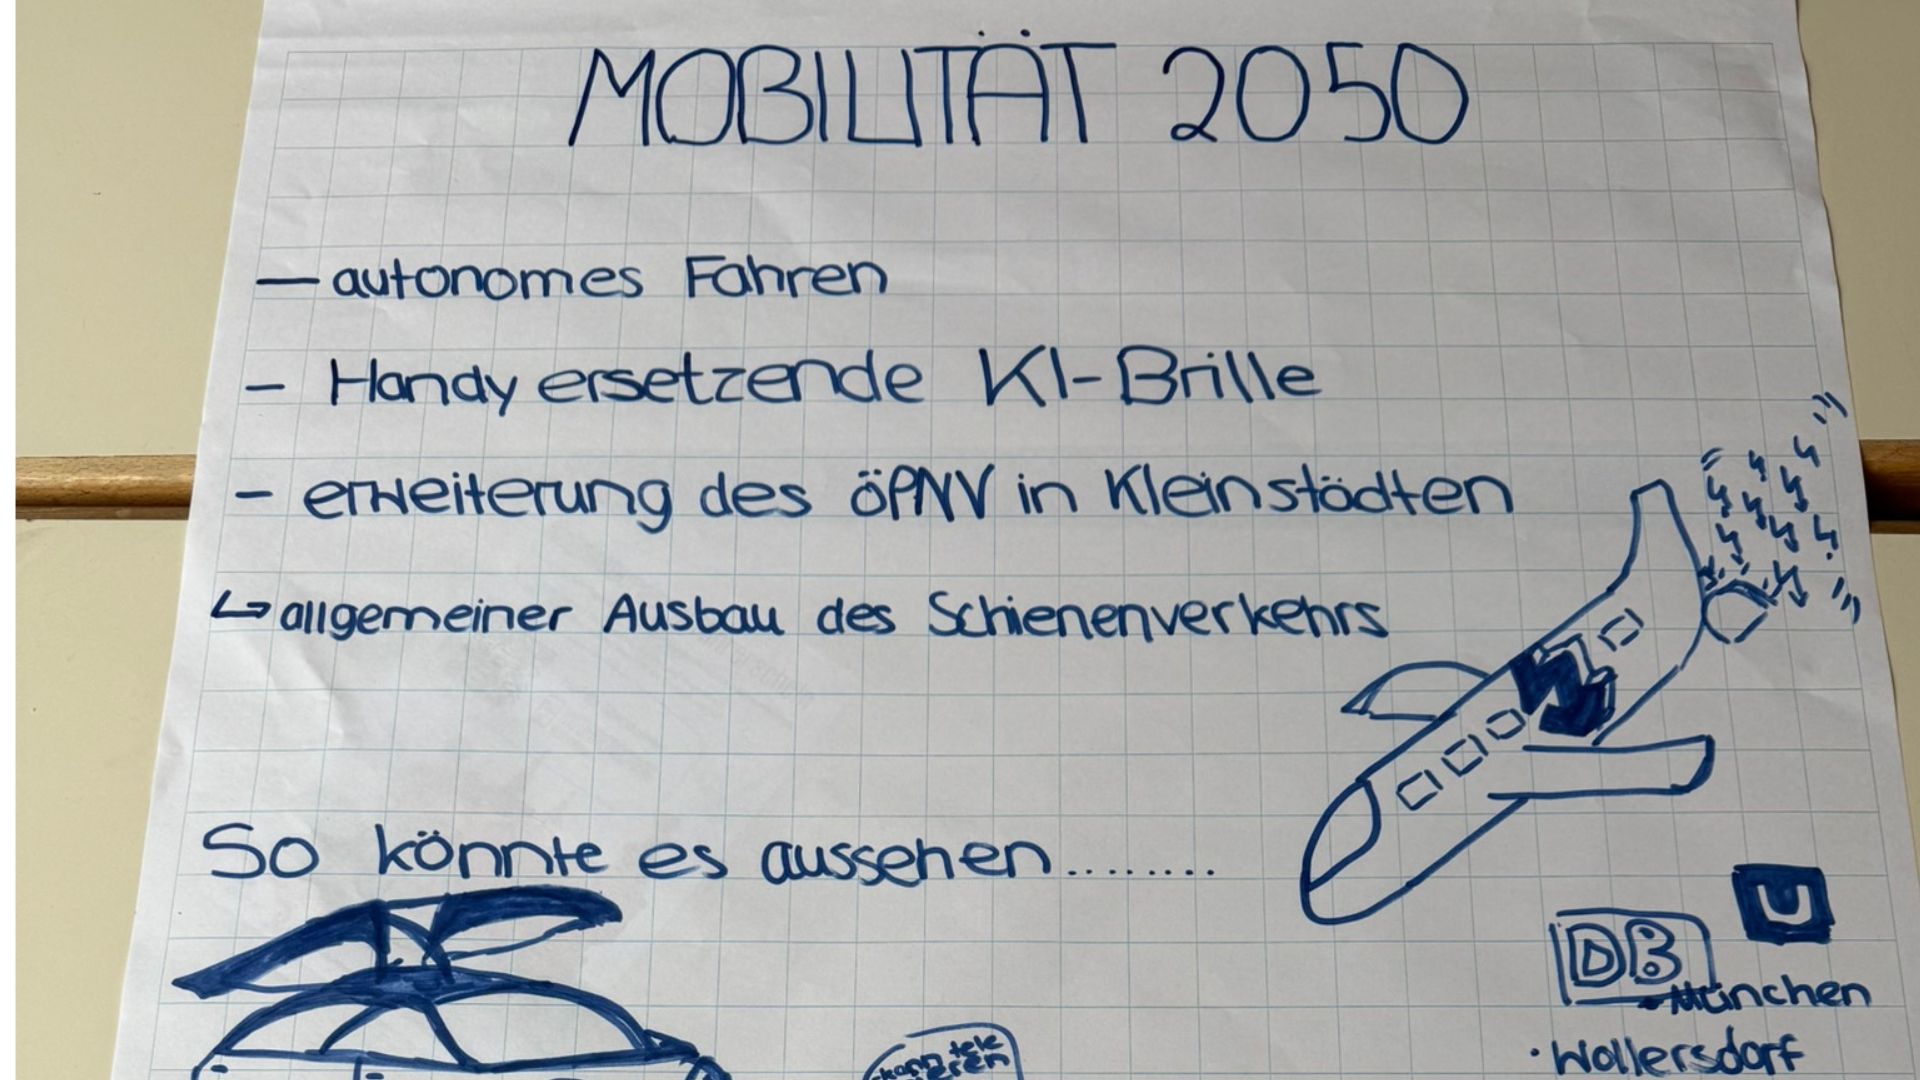 MOBILITÄT 2050
— autonomes Fahren
- Handy ersetzende KI-Brille
- erweiterung des öPNV in Kleinstädten
↳ allgemeiner Ausbau des Schienenverkehrs
So könnte es aussehen........
U
DB
München
· Wollersdorf
kann tele